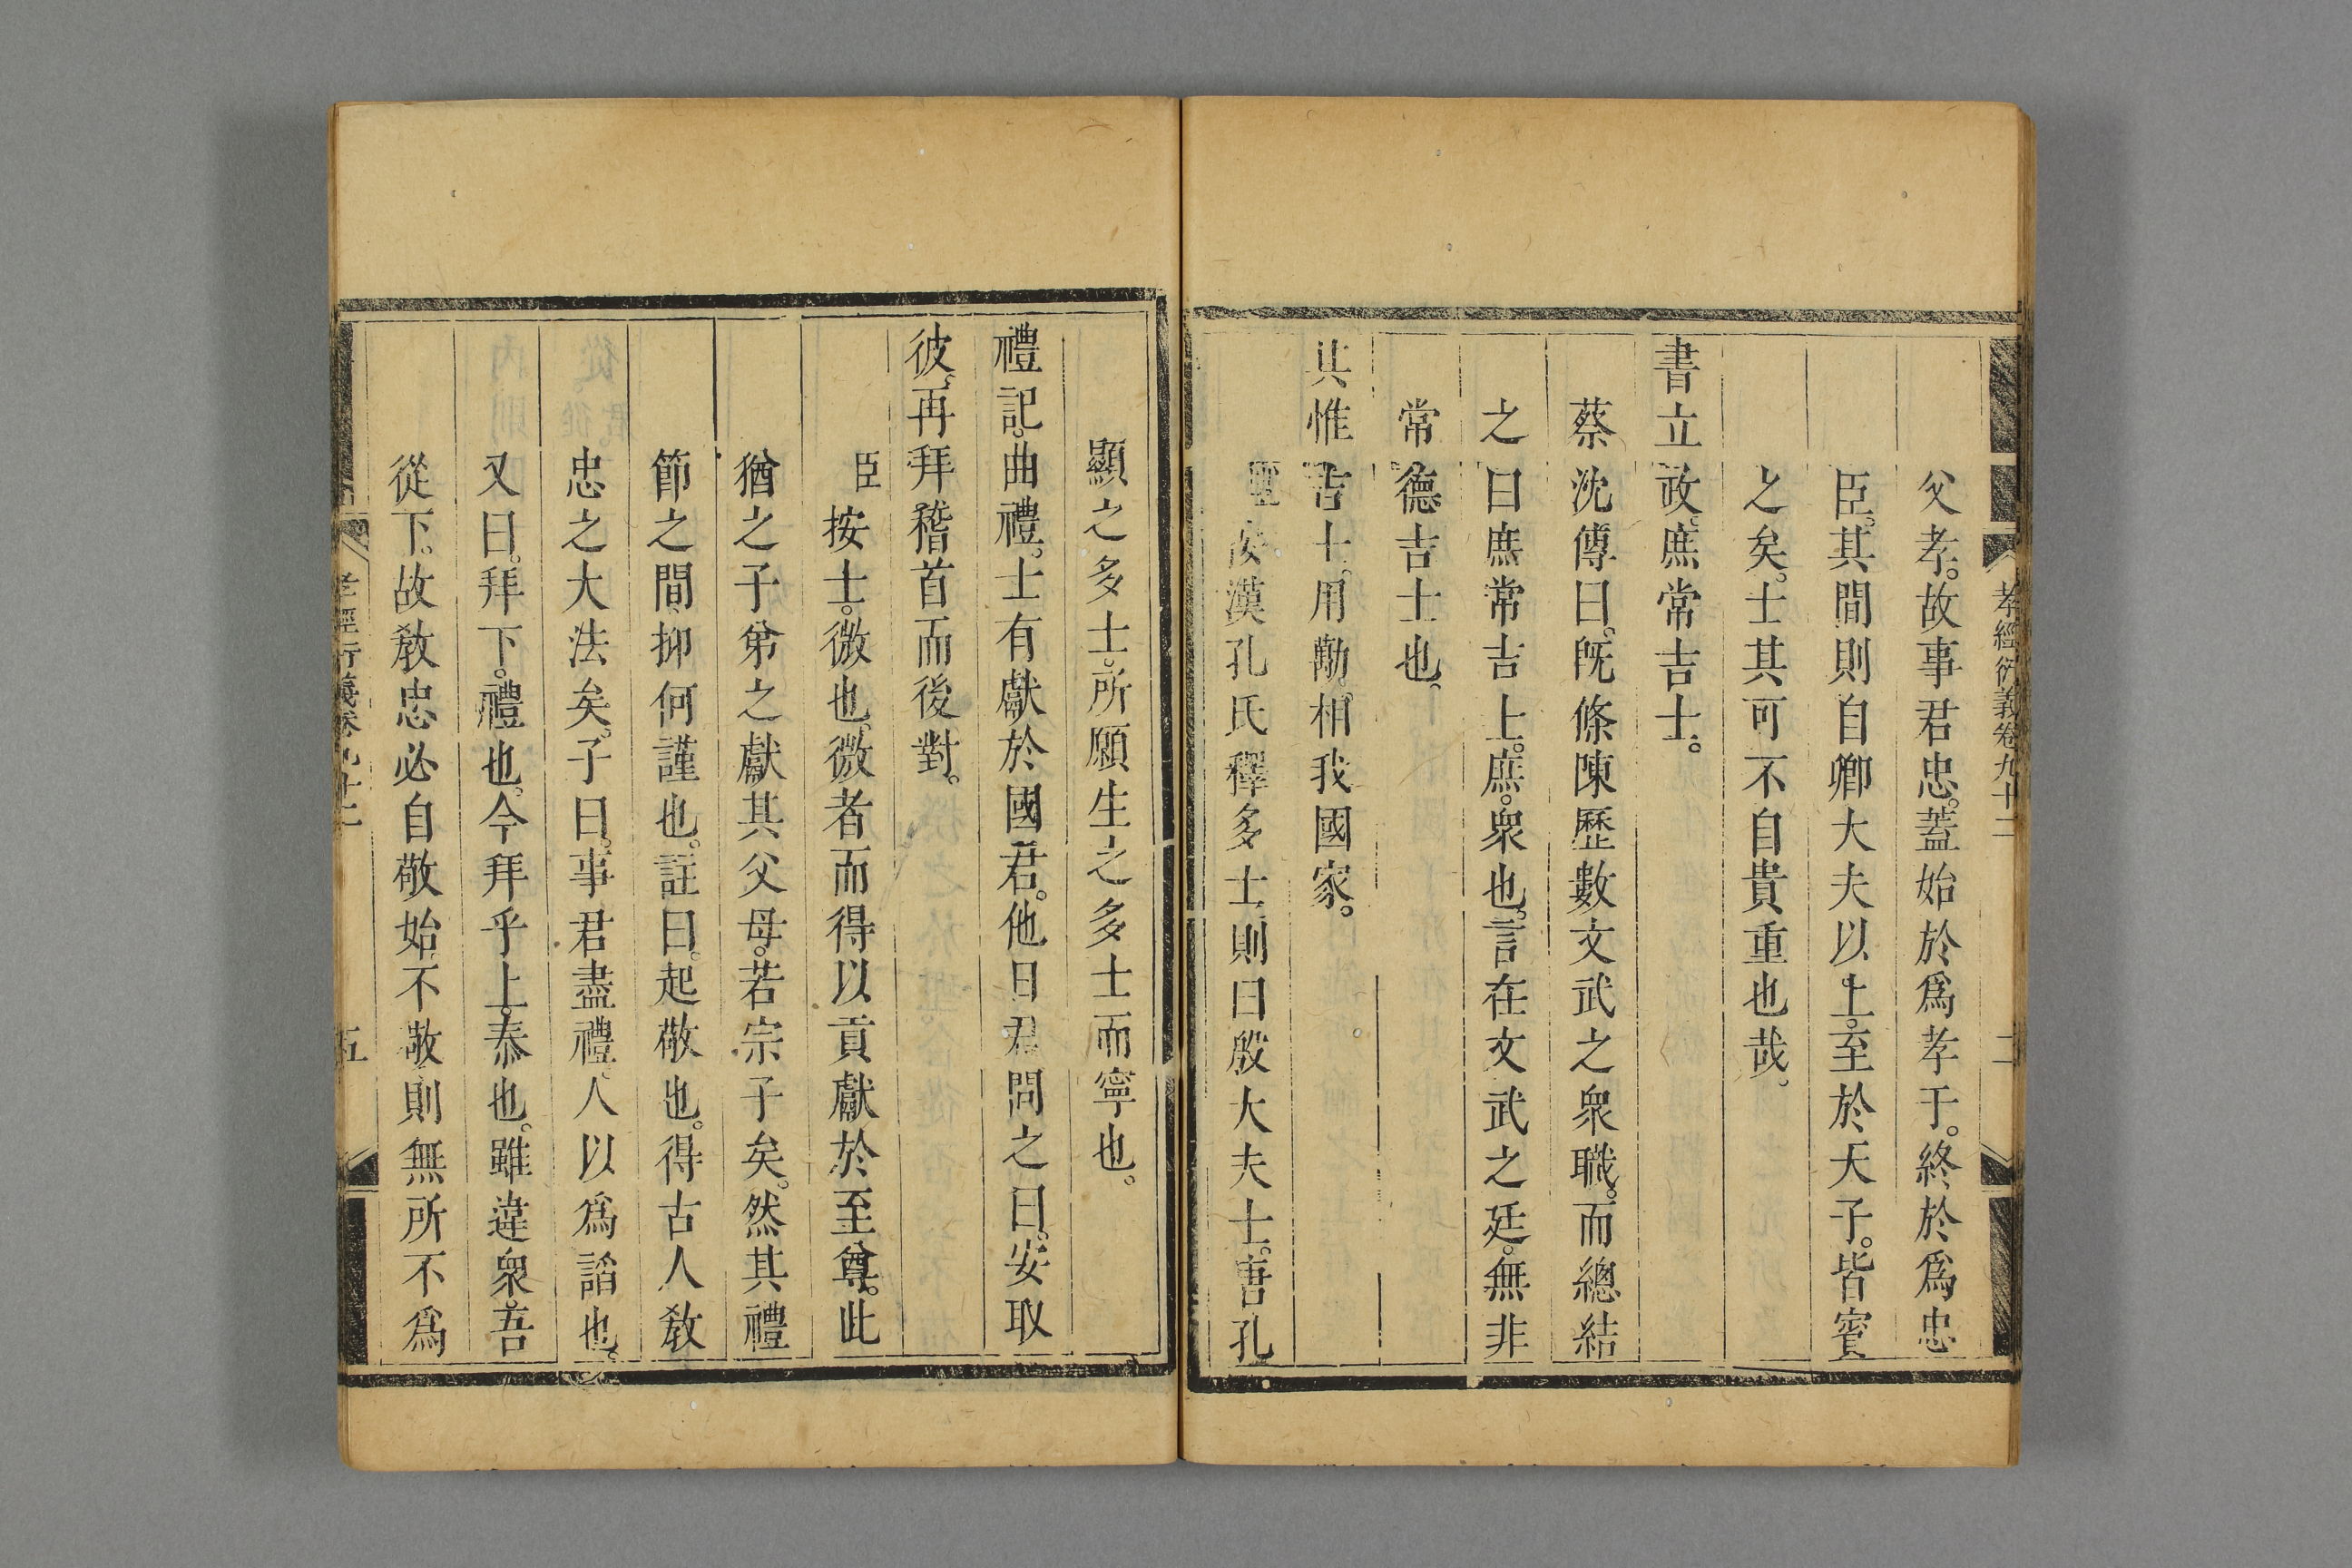 孝經衍義卷九十二
二
父孝。故事君忠。蓋始於爲孝子。終於爲忠
臣。其間則自卿大夫以上。至於天子。皆賓
之矣。士其可不自貴重也哉。
書立政。庶常吉士。
蔡沈傳曰。旣條陳歷數文武之衆職。而總結
之曰庶常吉士。庶。衆也。言在文武之廷。無非
常德吉士也。
其惟吉士。用勱相我國家。
按漢孔氏釋多士則曰殷大夫士。唐孔
顯之多士。所願生之多士而寧也。
禮記。曲禮。士有獻於國君。他日君問之曰。安取
彼。再拜稽首而後對。
臣按士。微也。微者而得以貢獻於至尊。此
猶之子弟之獻其父母。若宗子矣。然其禮
節之間。抑何謹也。註曰。起敬也。得古人敎
忠之大法矣。子曰。事君盡禮。人以爲諂也。
又曰。拜下。禮也。今拜乎上。泰也。雖違衆。吾
從下。故敎忠必自敬始。不敬則無所不爲
孝經衍義卷九十二
五